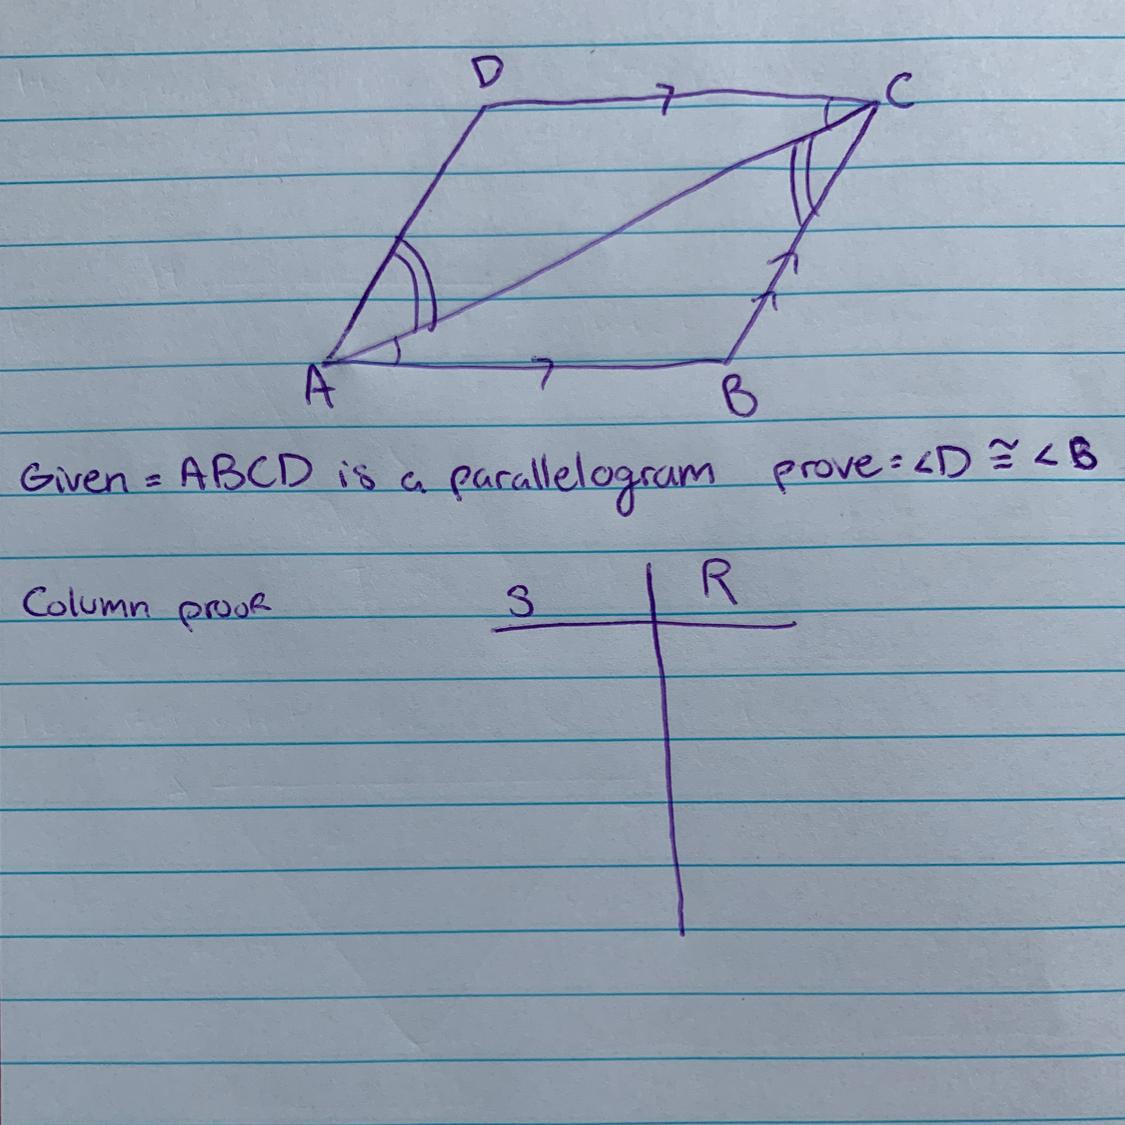 D
C
A
B
Given = ABCD is a parallelogram prove = <D ≅ <B
Column proof
S R